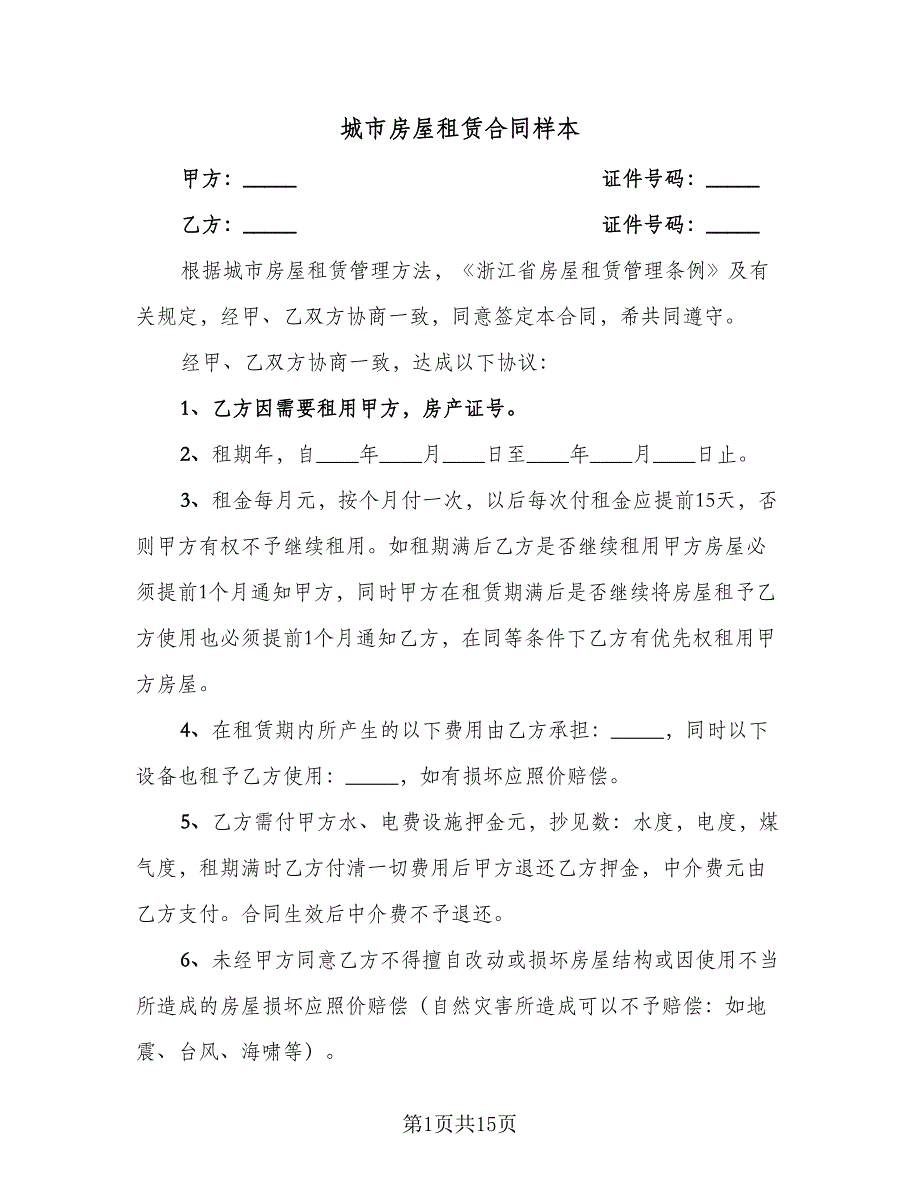 城市房屋租赁合同样本
甲方：_____ 证件号码：_____
乙方：_____ 证件号码：_____
根据城市房屋租赁管理方法，《浙江省房屋租赁管理条例》及有
关规定，经甲、乙双方协商一致，同意签定本合同，希共同遵守。
经甲、乙双方协商一致，达成以下协议：
1、乙方因需要租用甲方，房产证号。
2、租期年，自____年____月____日至____年____月____日止。
3、租金每月元，按个月付一次，以后每次付租金应提前15天，否
则甲方有权不予继续租用。如租期满后乙方是否继续租用甲方房屋必
须提前1个月通知甲方，同时甲方在租赁期满后是否继续将房屋租予乙
方使用也必须提前1个月通知乙方，在同等条件下乙方有优先权租用甲
方房屋。
4、在租赁期内所产生的以下费用由乙方承担：_____，同时以下
设备也租予乙方使用：_____，如有损坏应照价赔偿。
5、乙方需付甲方水、电费设施押金元，抄见数：水度，电度，煤
气度，租期满时乙方付清一切费用后甲方退还乙方押金，中介费元由
乙方支付。合同生效后中介费不予退还。
6、未经甲方同意乙方不得擅自改动或损坏房屋结构或因使用不当
所造成的房屋损坏应照价赔偿（自然灾害所造成可以不予赔偿：如地
震、台风、海啸等）。
第1页共15页